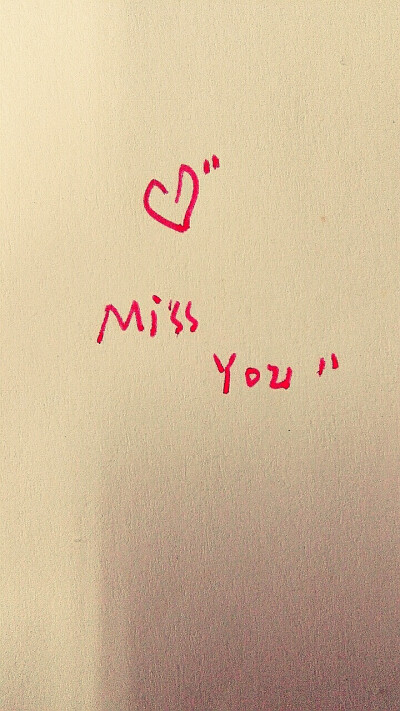 "
Miss
You "